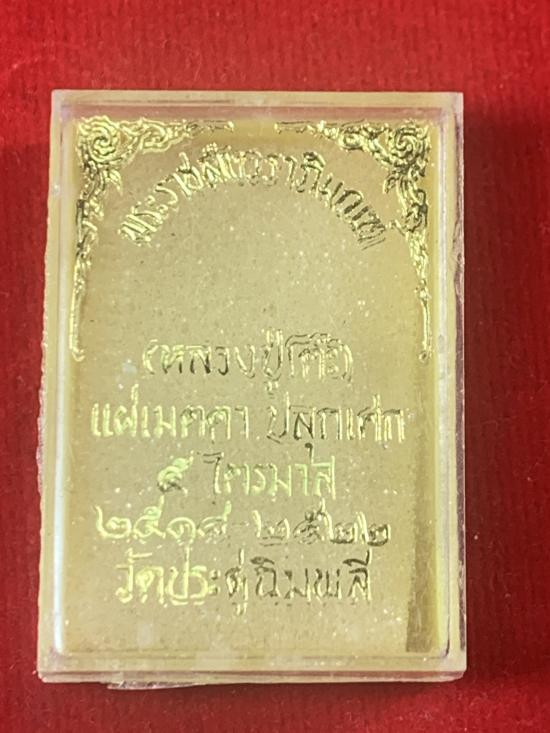 พระราชสังวราภิมณฑ์
(หลวงปู่โต๊ะ)
แผ่เมตตา ปลุกเศก
๕ ไตรมาส
๒๕๑๘-๒๕๒๒
วัดประดู่ฉิมพลี